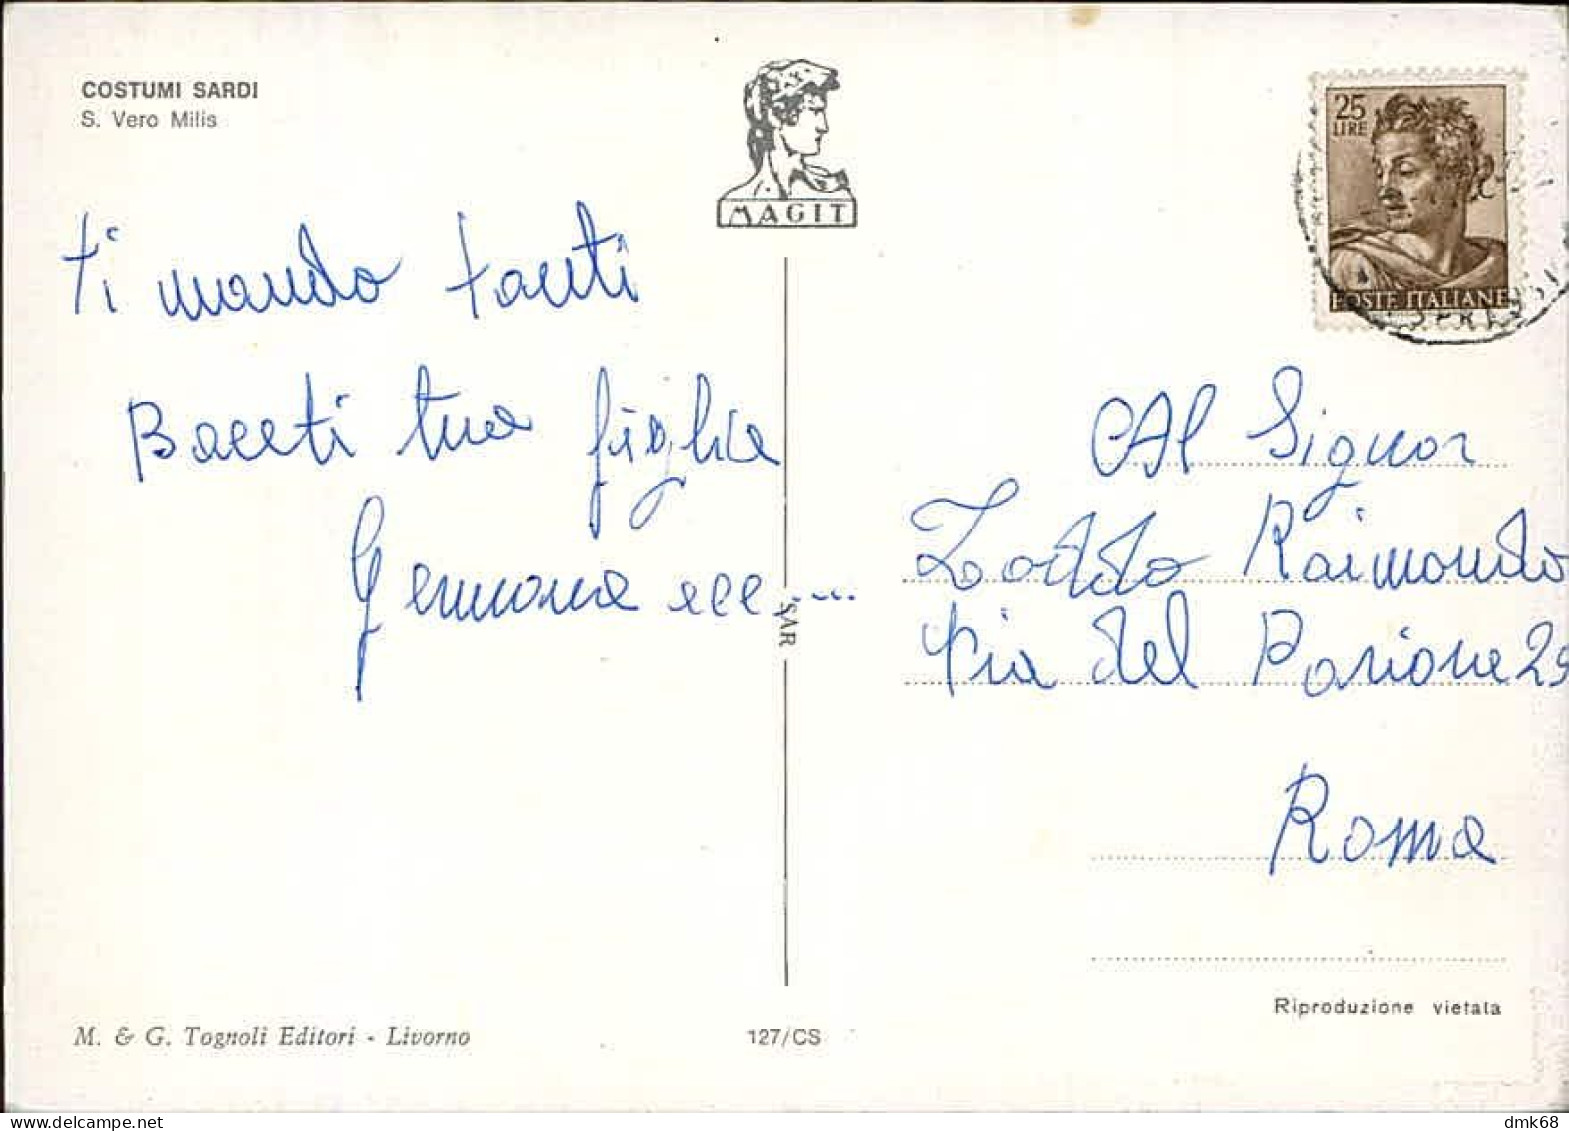 COSTUMI SARDI
S. Vero Milis
MAGIT
25
LIRE
POSTE ITALIANE
ti mando tanti
Baceti tua figlia
Gemmana ecc....
SAR
Al Signor
Zoddo Raimondo
Via del Parione 29
Roma
Riproduzione vietata
M. & G. Tognoli Editori - Livorno
127/CS
dmk68